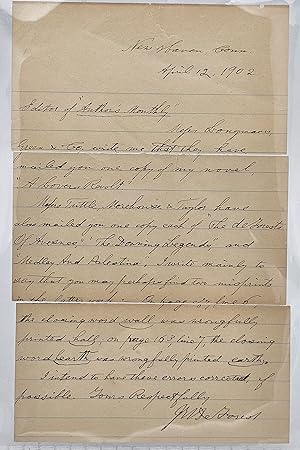 New Haven, Conn
April 12, 1902.
Editor of "Author's Monthly"
Messrs Longmans,
Green & Co, wrote me that they have
mailed you one copy of my novel,
"A Lover's Revolt".
Messrs Tuttle, Morehouse & Taylor have
also mailed you one copy each of "The de Forests
Of Avesnes," "The Downing Legends," and
"Medley And Palestina." I write mainly to
say that you may perhaps find two misprints
in the latter On page 27, line
the closing word wall was wrongfully
printed half, on page 163, line 7, the closing
word earth was wrongfully printed earthy.
I intend to have these errors corrected, if
possible. Yours Respectfully
J W De Forest